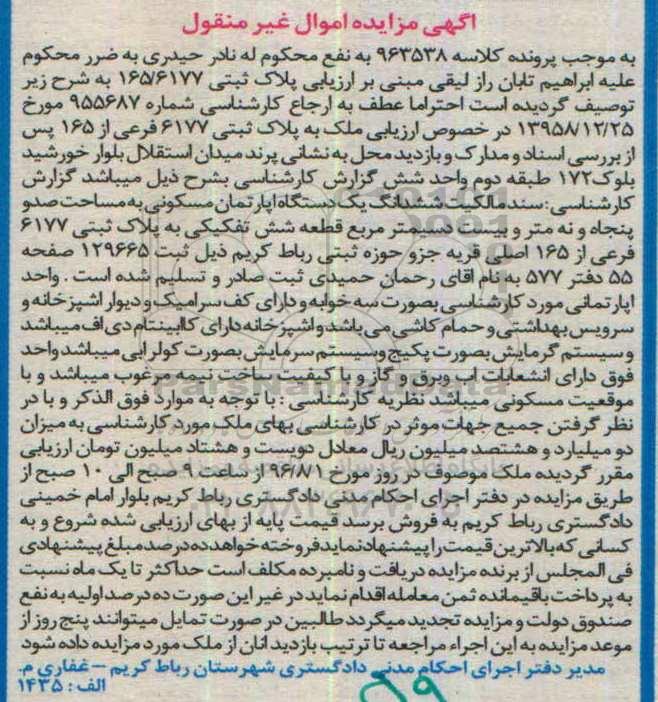 اگهی مزایده اموال غیر منقول
به موجب پرونده کلاسه ۹۶۳۵۳۸ به نفع محکوم له نادر حیدری به ضرر محکوم
علیه ابراهیم تابان راز لیقی مبنی بر ارزیابی پلاک ثبتی ۱۶۵/۶۱۷۷ به شرح زیر
توصیف گردیده است احتراما عطف به ارجاع کارشناسی شماره ۹۵۵۶۸۷ مورخ
۱۳۹۵۸/۱۲/۲۵ در خصوص ارزیابی ملک به پلاک ثبتی ۶۱۷۷ فرعی از ۱۶۵ پس
از بررسی اسناد و مدارک و بازدید محل به نشانی پرند میدان استقلال بلوار خورشید
بلوک ۱۷۲ طبقه دوم واحد شش گزارش کارشناسی بشرح ذیل میباشد گزارش
کارشناسی: سند مالکیت ششدانگ یک دستگاه اپارتمان مسکونی به مساحت صدو
پنجاه و نه متر و بیست دسیمتر مربع قطعه شش تفکیکی به پلاک ثبتی ۶۱۷۷
فرعی از ۱۶۵ اصلی قریه جزو حوزه ثبتی رباط کریم ذیل ثبت ۱۲۹۶۶۵ صفحه
۵۵ دفتر ۵۷۷ به نام اقای رحمان حمیدی ثبت صادر و تسلیم شده است . واحد
اپارتمانی مورد کارشناسی بصورت سه خوابه و دارای کف سرامیک و دیوار اشپزخانه و
سرویس بهداشتی و حمام کاشی می باشد و اشپزخانه دارای کابینتام دی اف میباشد
و سیستم گرمایش بصورت پکیج و سیستم سرمایش بصورت کولر ابی میباشد واحد
فوق دارای انشعابات اب وبرق و گاز و با کیفیت ساخت نیمه مرغوب میباشد و با
موقعیت مسکونی میباشد نظریه کارشناسی : با توجه به موارد فوق الذکر و با در
نظر گرفتن جمیع جهات موثر در کارشناسی بهای ملک مورد کارشناسی به میزان
دو میلیارد و هشتصد میلیون ریال معادل دویست و هشتاد میلیون تومان ارزیابی
مقرر گردیده ملک موصوف در روز مورخ ۹۶/۸/۱ از ساعت ۹ صبح الی ۱۰ صبح از
طریق مزایده در دفتر اجرای احکام مدنی دادگستری رباط کریم بلوار امام خمینی
دادگستری رباط کریم به فروش برسد قیمت پایه از بهای ارزیابی شده شروع و به
کسانی که بالاترین قیمت را پیشنهاد نماید فروخته خواهد ده درصد مبلغ پیشنهادی
فی المجلس از برنده مزایده دریافت و نامبرده مکلف است حداکثر تا یک ماه نسبت
به پرداخت باقیمانده ثمن معامله اقدام نماید در غیر این صورت ده درصد اولیه به نفع
صندوق دولت و مزایده تجدید میگردد طالبین در صورت تمایل میتوانند پنج روز از
موعد مزایده به این اجراء مراجعه تا ترتیب بازدید انان از ملک مورد مزایده داده شود
مدیر دفتر اجرای احکام مدنی دادگستری شهرستان رباط کریم – غفاری م.
الف : ۱۴۳۵